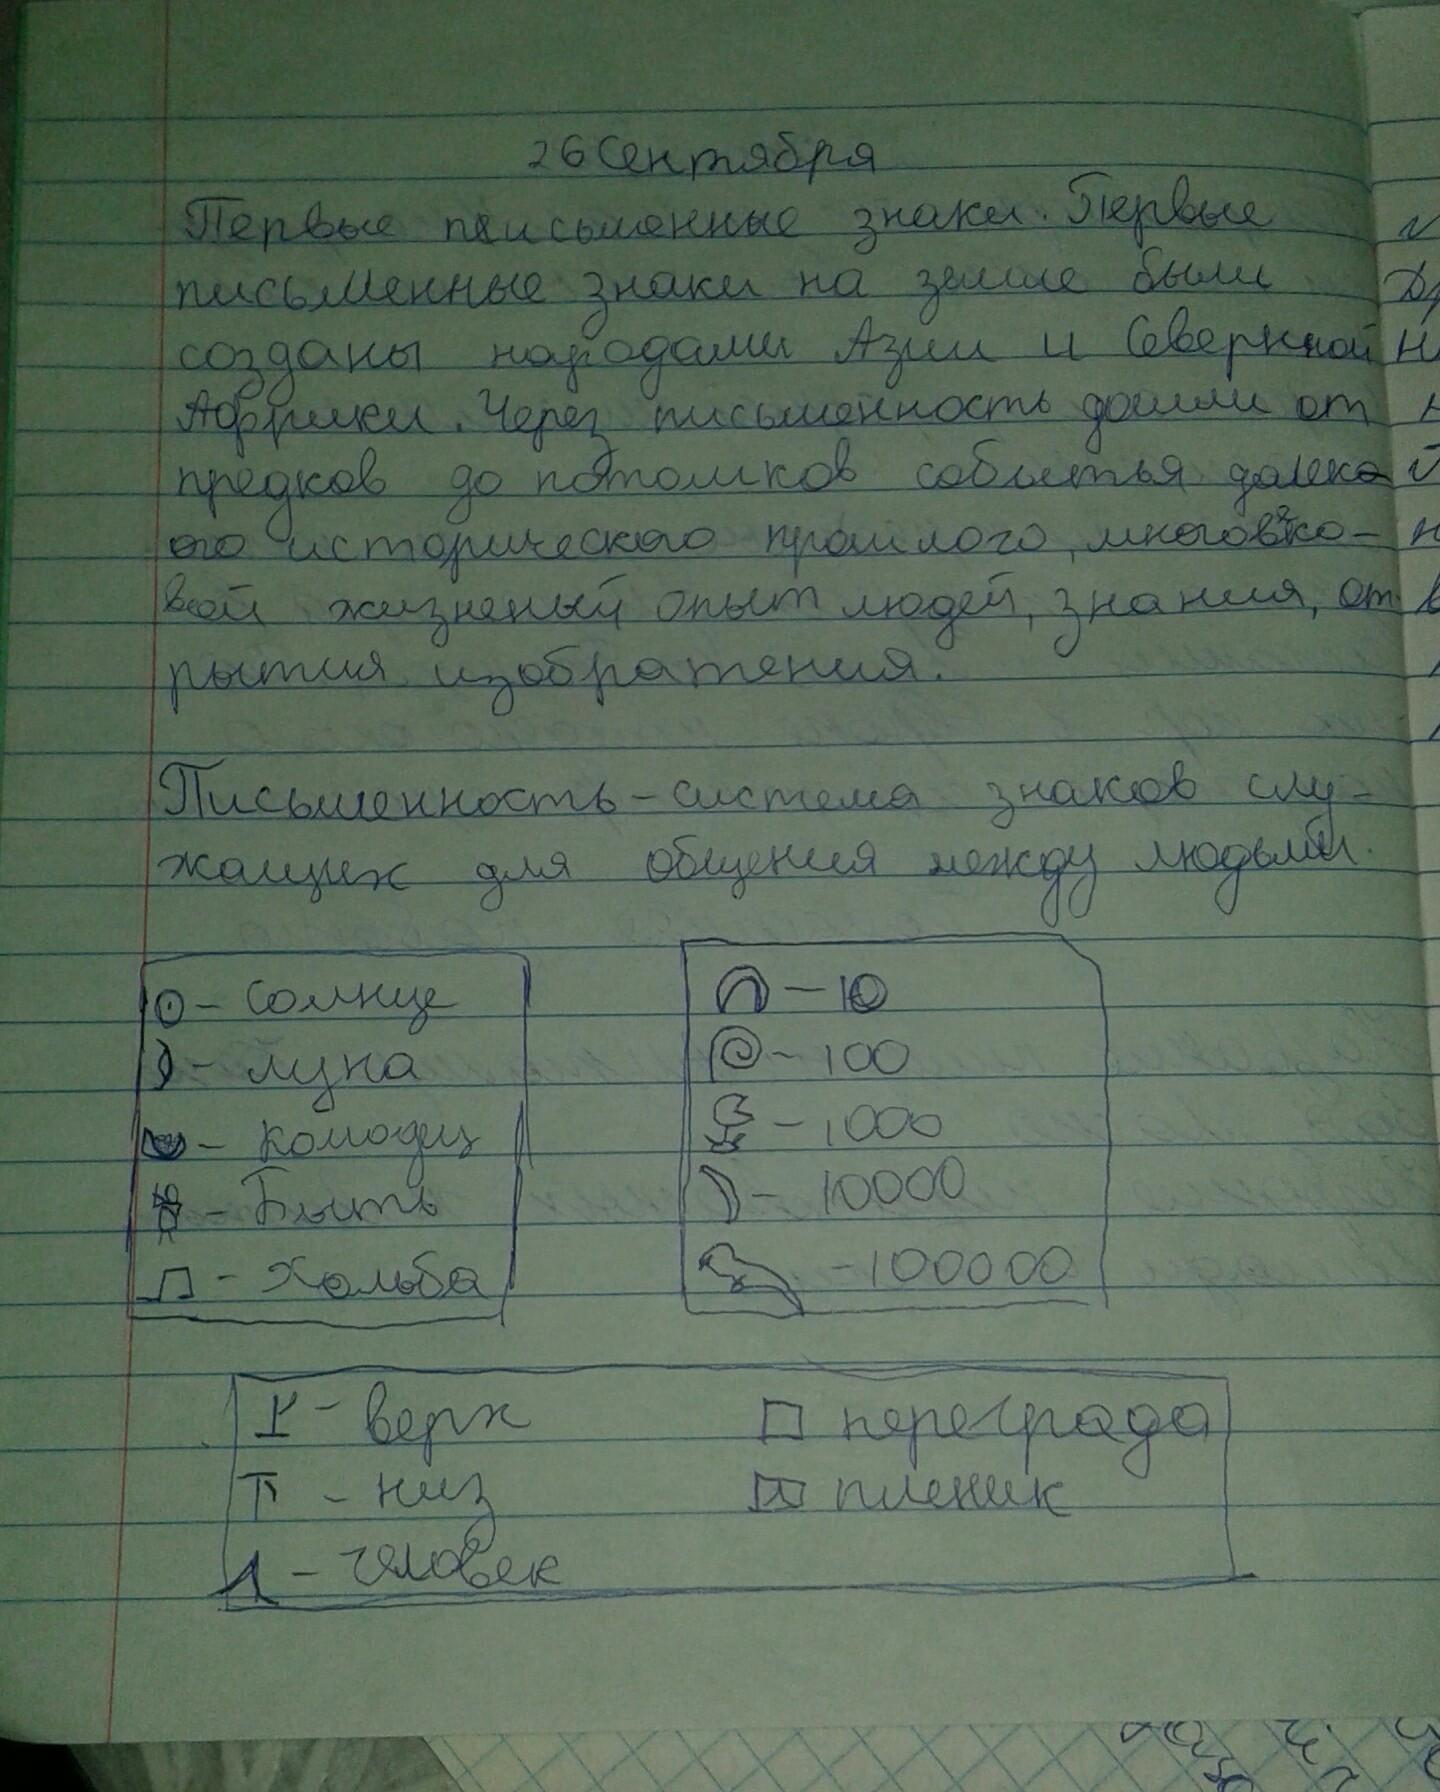 26 Сентября
Первые письменные знаки. Первые
письменные знаки на земле были
созданы народами Азии и Северной
Африки. Через письменность дошли от
предков до потомков событья далеко
ого исторического прошлого, многовеко-
вой жизненый опыт людей, знания, от
рытия изобратения.
Письменность - система знаков слу-
жащих для общения между людьми.
- Солнце
- луна
- колодец
- Быть
- Хольба
- 10
- 100
- 1000
- 10000
- 100000
- верх
- низ
- человек
переграда
пленик